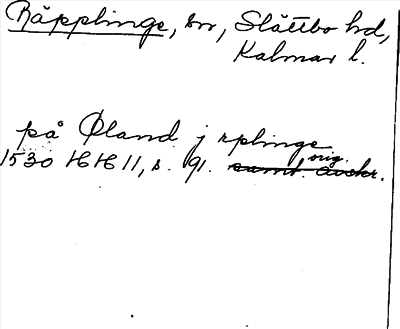 Räpplinge, sn, Slättbo hd,
Kalmar l.
på Øland j rplinge
orig.
1530 HH 11, s. 91. samt. avskr.